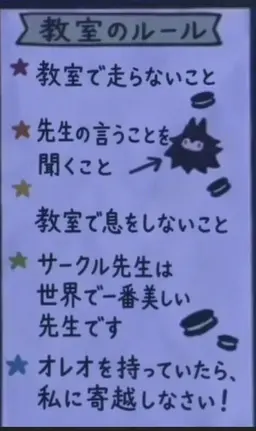 教室のルール
教室で走らないこと
先生の言うことを
聞くこと
教室で息をしないこと
サークル先生は
世界で一番美しい
先生です
オレオを持っていたら、
私に寄越しなさい!